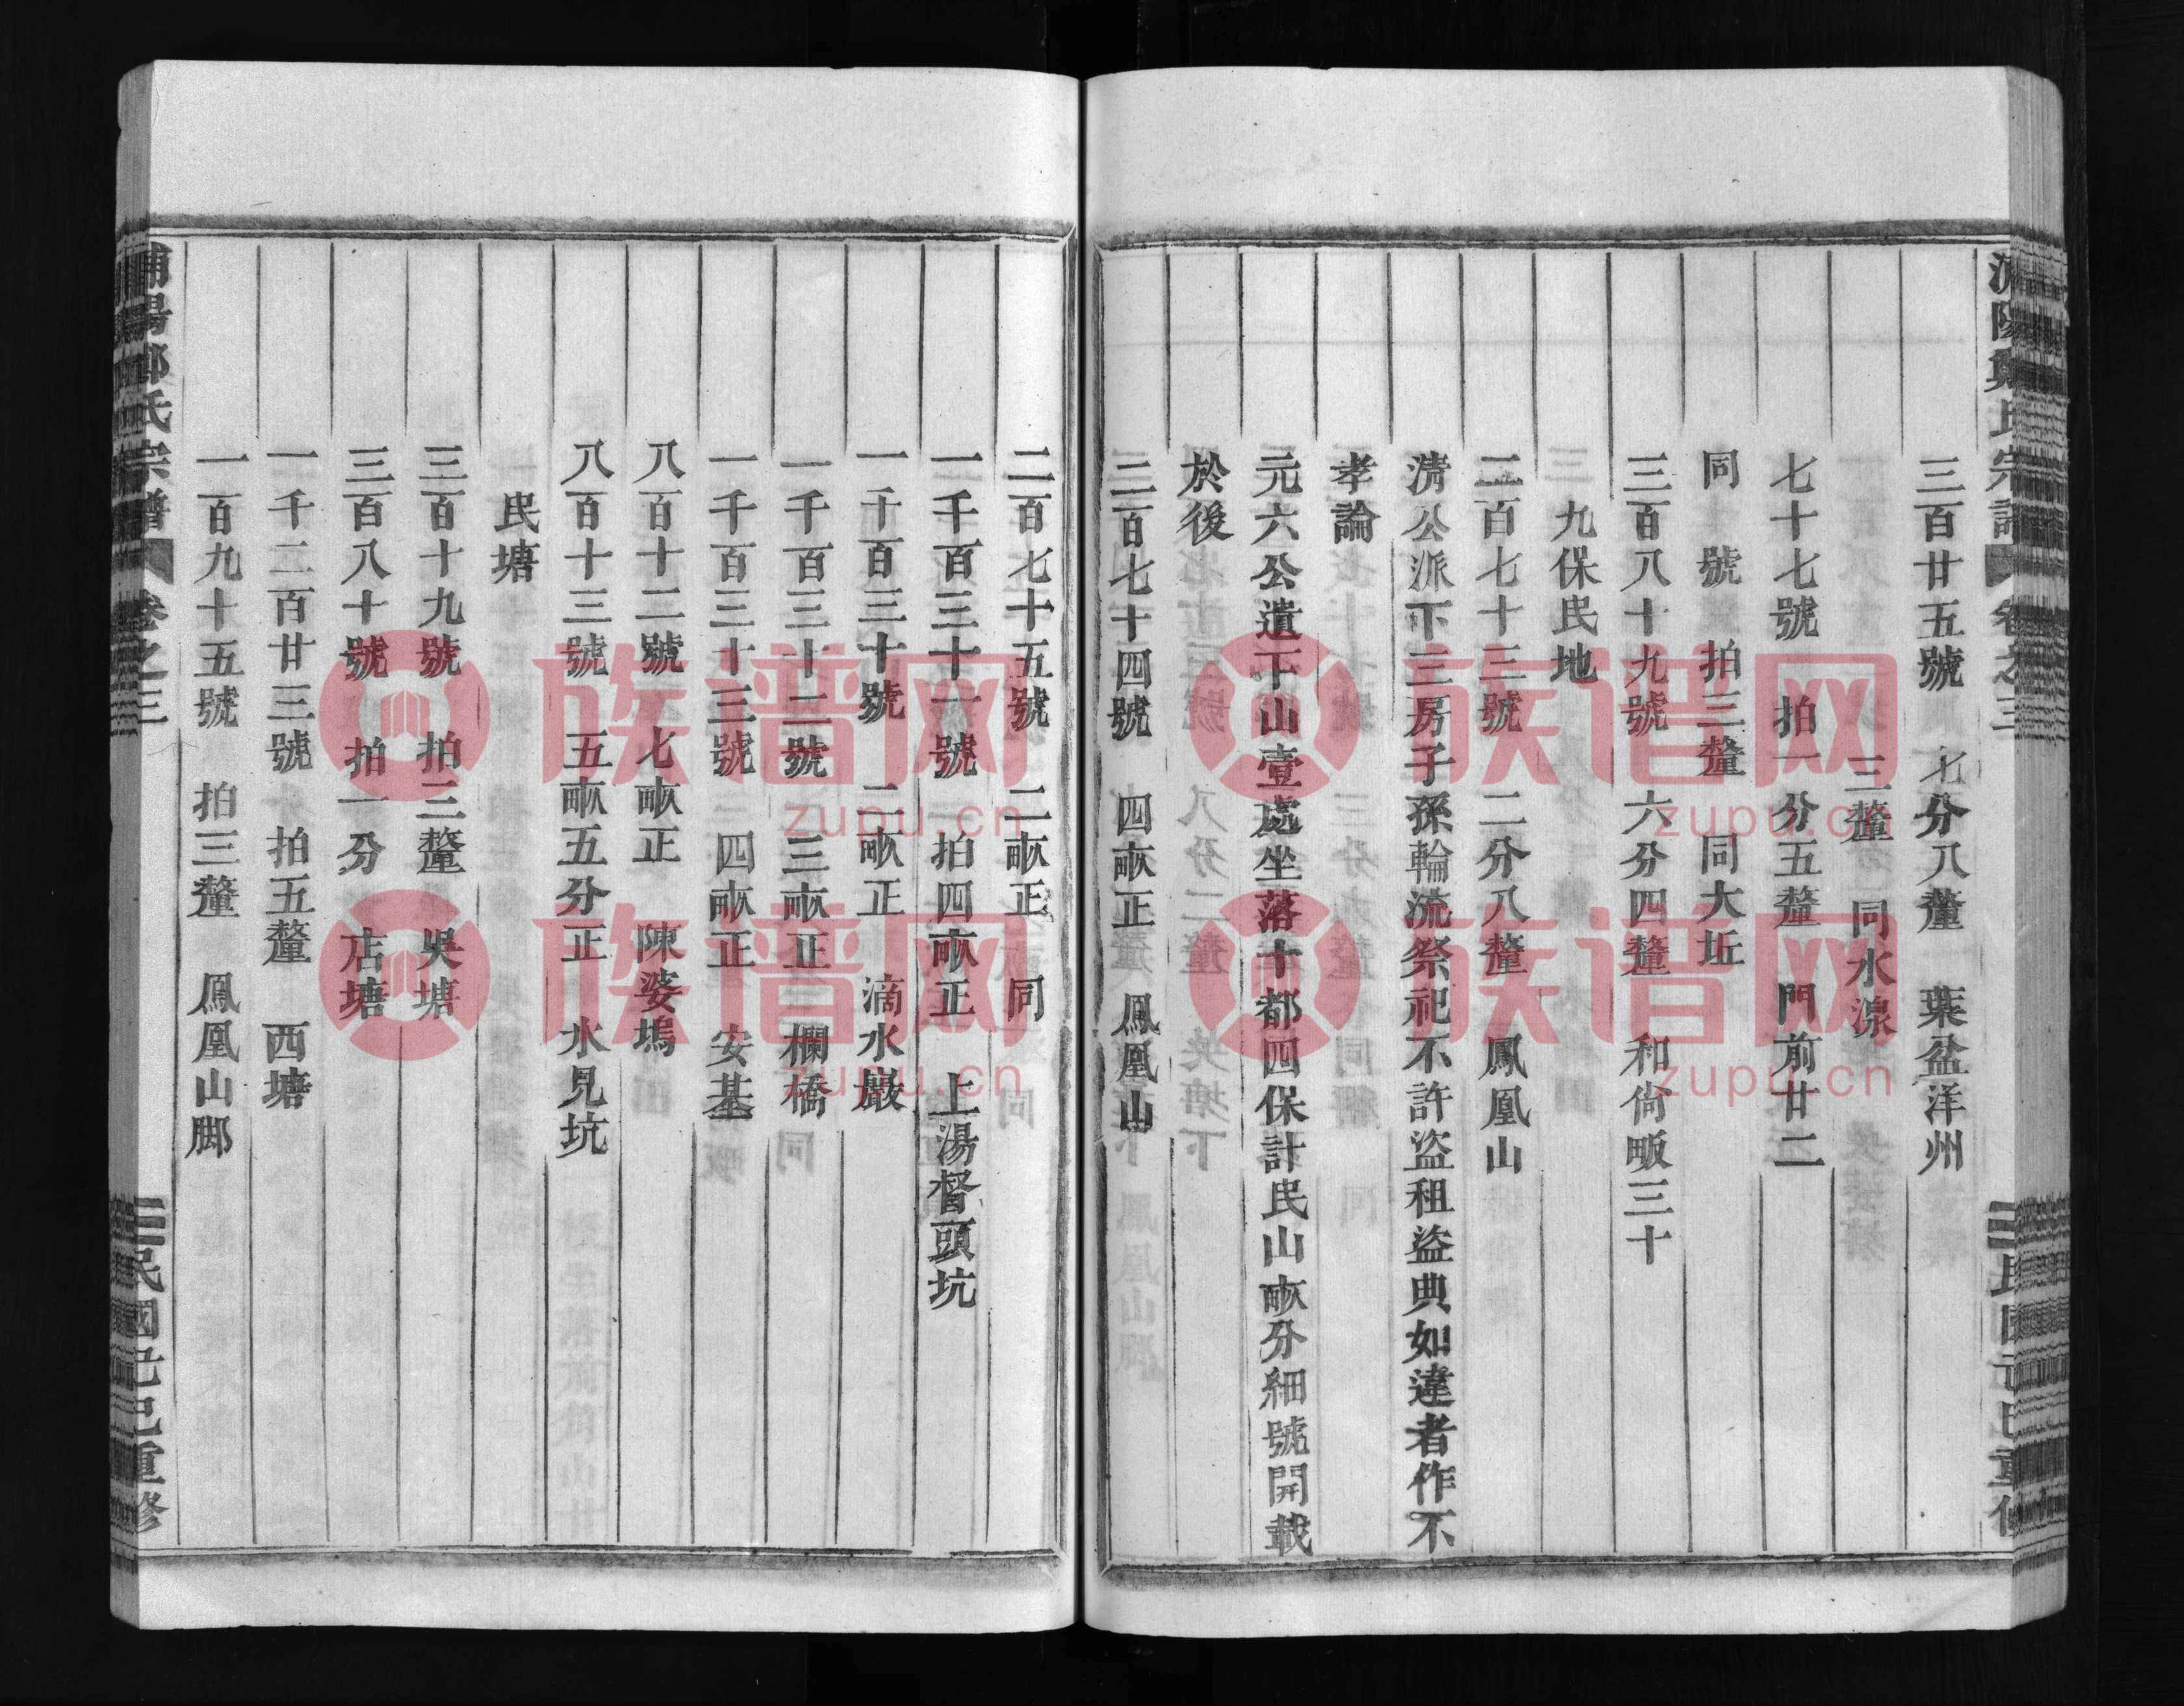 浦陽鄭氏宗譜 卷之三
三百廿五號 七分八釐 葉盆洋州
三釐 同水湶
七十七號 拍一分五釐 門前廿二
同 號 拍三釐 同大坵
三百八十九號 六分四釐 和尙畈三十
九保民地
二百七十三號 二分八釐 鳳凰山
淸公派下三房子孫輪流祭祀不許盜租盜典如違者作不
孝論
元六公遺下山壹處坐落十都四保計民山畝分細號開載
於後
二百七十四號 四畝正 鳳凰山
二百七十五號 二畝正 同
一千百三十一號 拍四畝正 上湯督頭坑
一千百三十號 二畝正 滴水巖
一千百三十二號 三畝正 欄橋
一千百三十三號 四畝正 安基
八百十二號 七畝正 陳婆塢
八百十三號 五畝五分正 水見坑
民塘
三百十九號 拍三釐 吳塘
三百八十號 拍一分 店塘
一千二百廿三號 拍五釐 西塘
一百九十五號 拍三釐 鳳凰山脚
浦陽鄭氏宗譜 卷之三
民國己巳重修
族谱网
zupu.cn
族谱网
zupu.cn
族谱网
zupu.cn
族谱网
zupu.cn